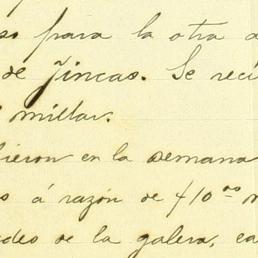 so para la otra a
de fincas. Se reci
millar.
ieron en la semana
s á razón de $10 00 m
des de la galera, ca